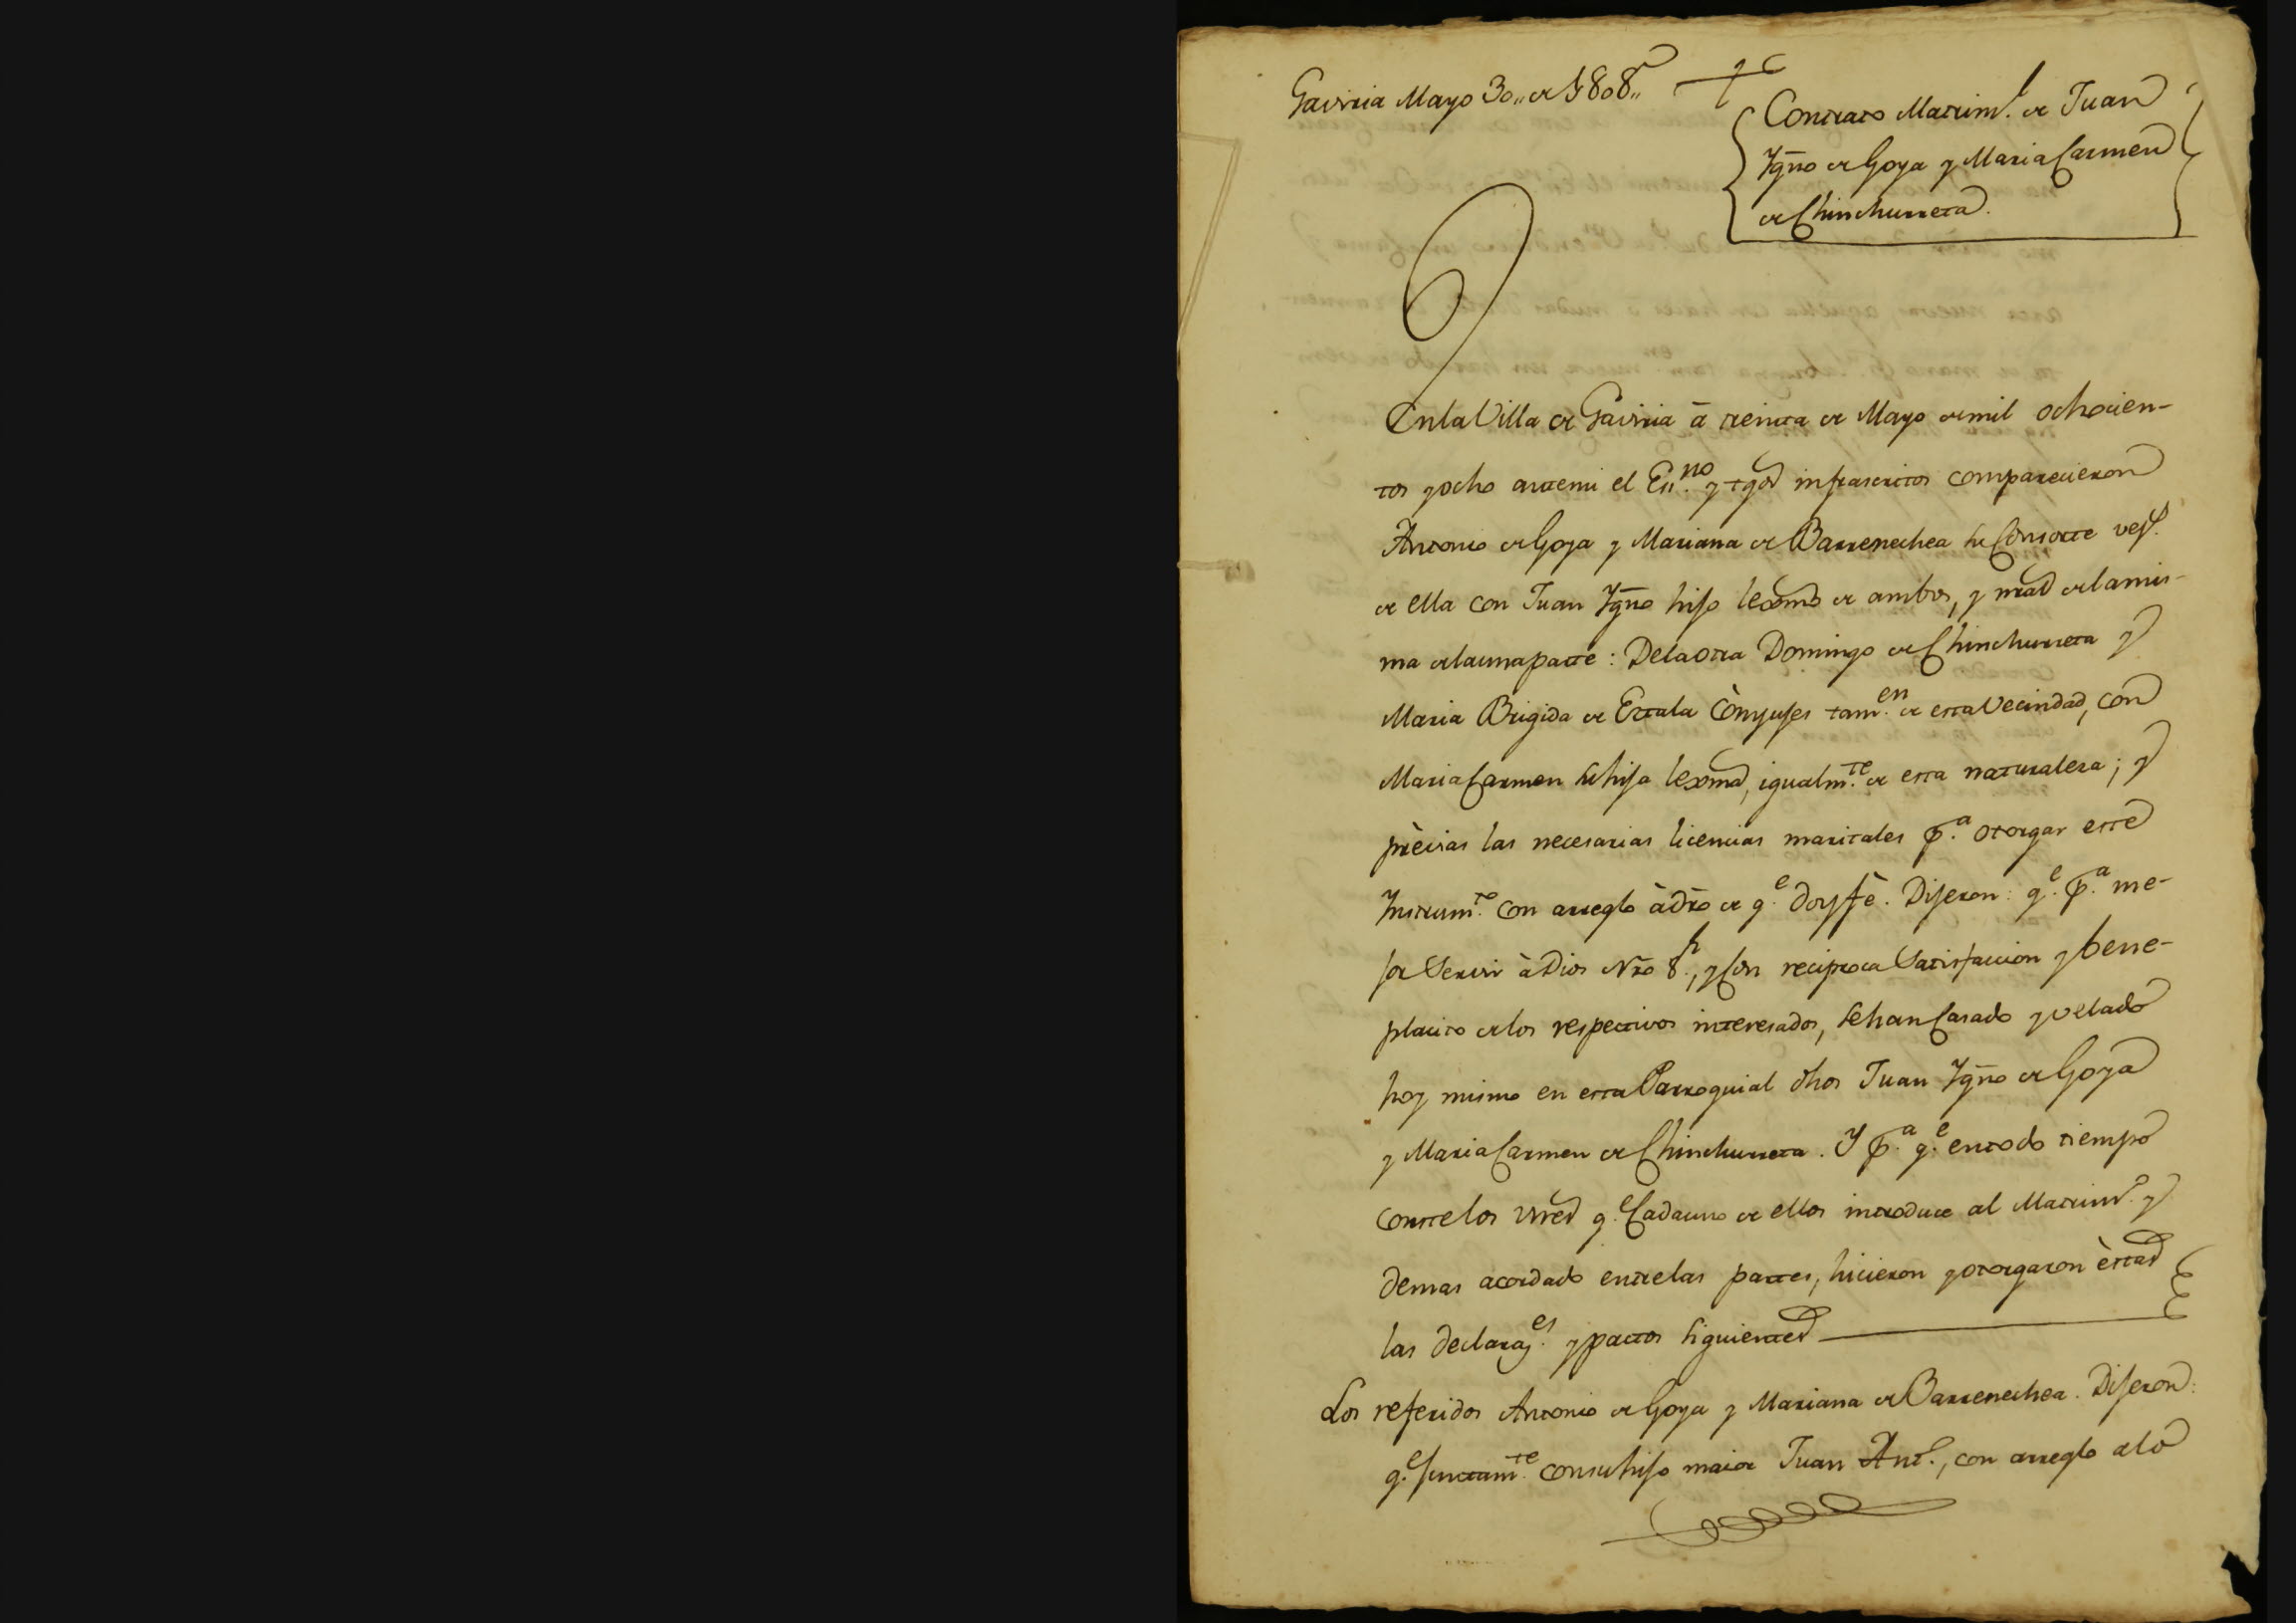 Gaviria Mayo 30,, de 1808,,
Contrato Matrim.l de Juan
Ygno de Goya y Maria Carmen
de Chinchurreta.
En la Villa de Gaviria á treinta de Mayo de mil ochocien-
tos y ocho ante mi el Es.no y tgos infrascritos comparecieron
Antonio de Goya y Mariana de Barrenechea su Consorte vez.s
de ella con Juan Ygno hijo lexmo de ambos, y nral de la mis-
ma de la una parte: De la otra Domingo de Chinchurreta y
Maria Brigida de Eztala Cònyujes tam.en de esta Vecindad, con
Maria Carmen su hija lexma, igualm.te de esta naturaleza; y
prèvias las necesarias licencias maritales p.a otorgar este
Ynstrum.to con arreglo à dro de q.e doy fè. Dijeron: q.e p.a me-
jor Servir à Dios Nro S.r, y Con reciproca Satisfaccion y bene-
placito de los respectivos interesados, se han Casado y velado
hoy mismo en esta Parroquial dhos Juan Ygno de Goya
y Maria Carmen de Chinchurreta. Y p.a q.e en todo tiempo
conste los vnes q.e Cada uno de ellos introduce al Matrim.o y
demas acordado entre las partes, hicieron y otorgaron èstas
las declaraz.es y pactos siguientes
Los referidos Antonio de Goya y Mariana de Barrenechea. Dijeron:
q.e juntam.te con su hijo maior Juan Ant.o, con arreglo a lo